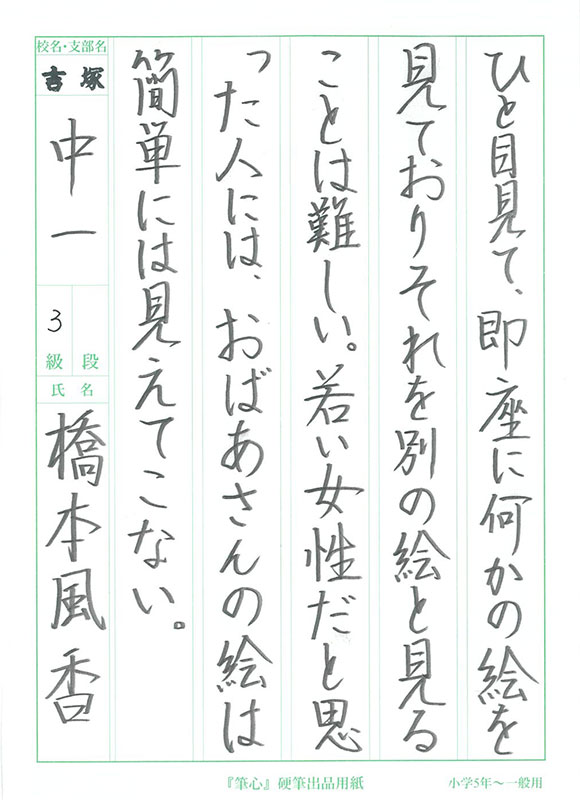 ひと目見て、即座に何かの絵を
見ておりそれを別の絵と見る
ことは難しい。若い女性だと思
った人には、おばあさんの絵は
簡単には見えてこない。
校名・支部名
吉塚
中一
3
級 段
氏 名
橋本風香
『筆心』硬筆出品用紙
小学5年〜一般用